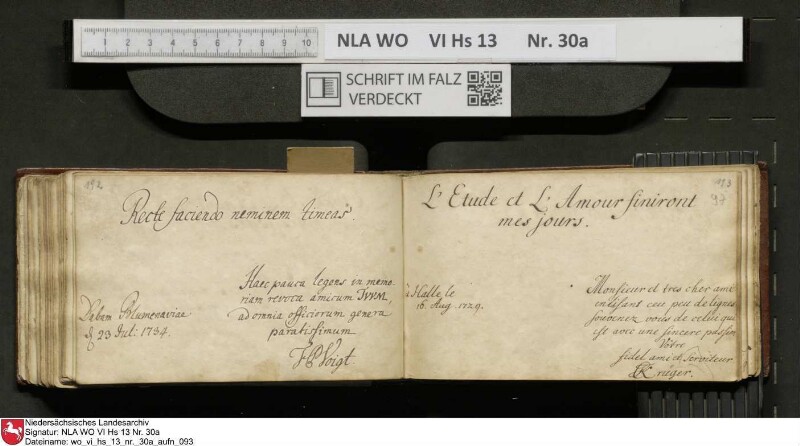 1 2 3 4 5 6 7 8 9 10
NLA WO VI Hs 13 Nr. 30a
SCHRIFT IM FALZ
VERDECKT
192
Recte faciendo neminem timeas.
Haec pauca legens in memo-
riam revoca amicum TVVM,
ad omnia officiorum genera
paratissimum
Voigt
Dabam Blumenaviae
d 23 Jul: 1734.
193
97
L'Etude et L'Amour finiront
mes jours.
à Halle le
16. Aug. 1729.
Monsieur et tres cher ami
en lisant ceu peu de lignes
souvenez vous de celui qui
est avec une sincere passion
Vôtre
fidel ami et Serviteur
Krüger.
Niedersächsisches Landesarchiv
Signatur: NLA WO VI Hs 13 Nr. 30a
Dateiname: wo_vi_hs_13_nr._30a_aufn_093